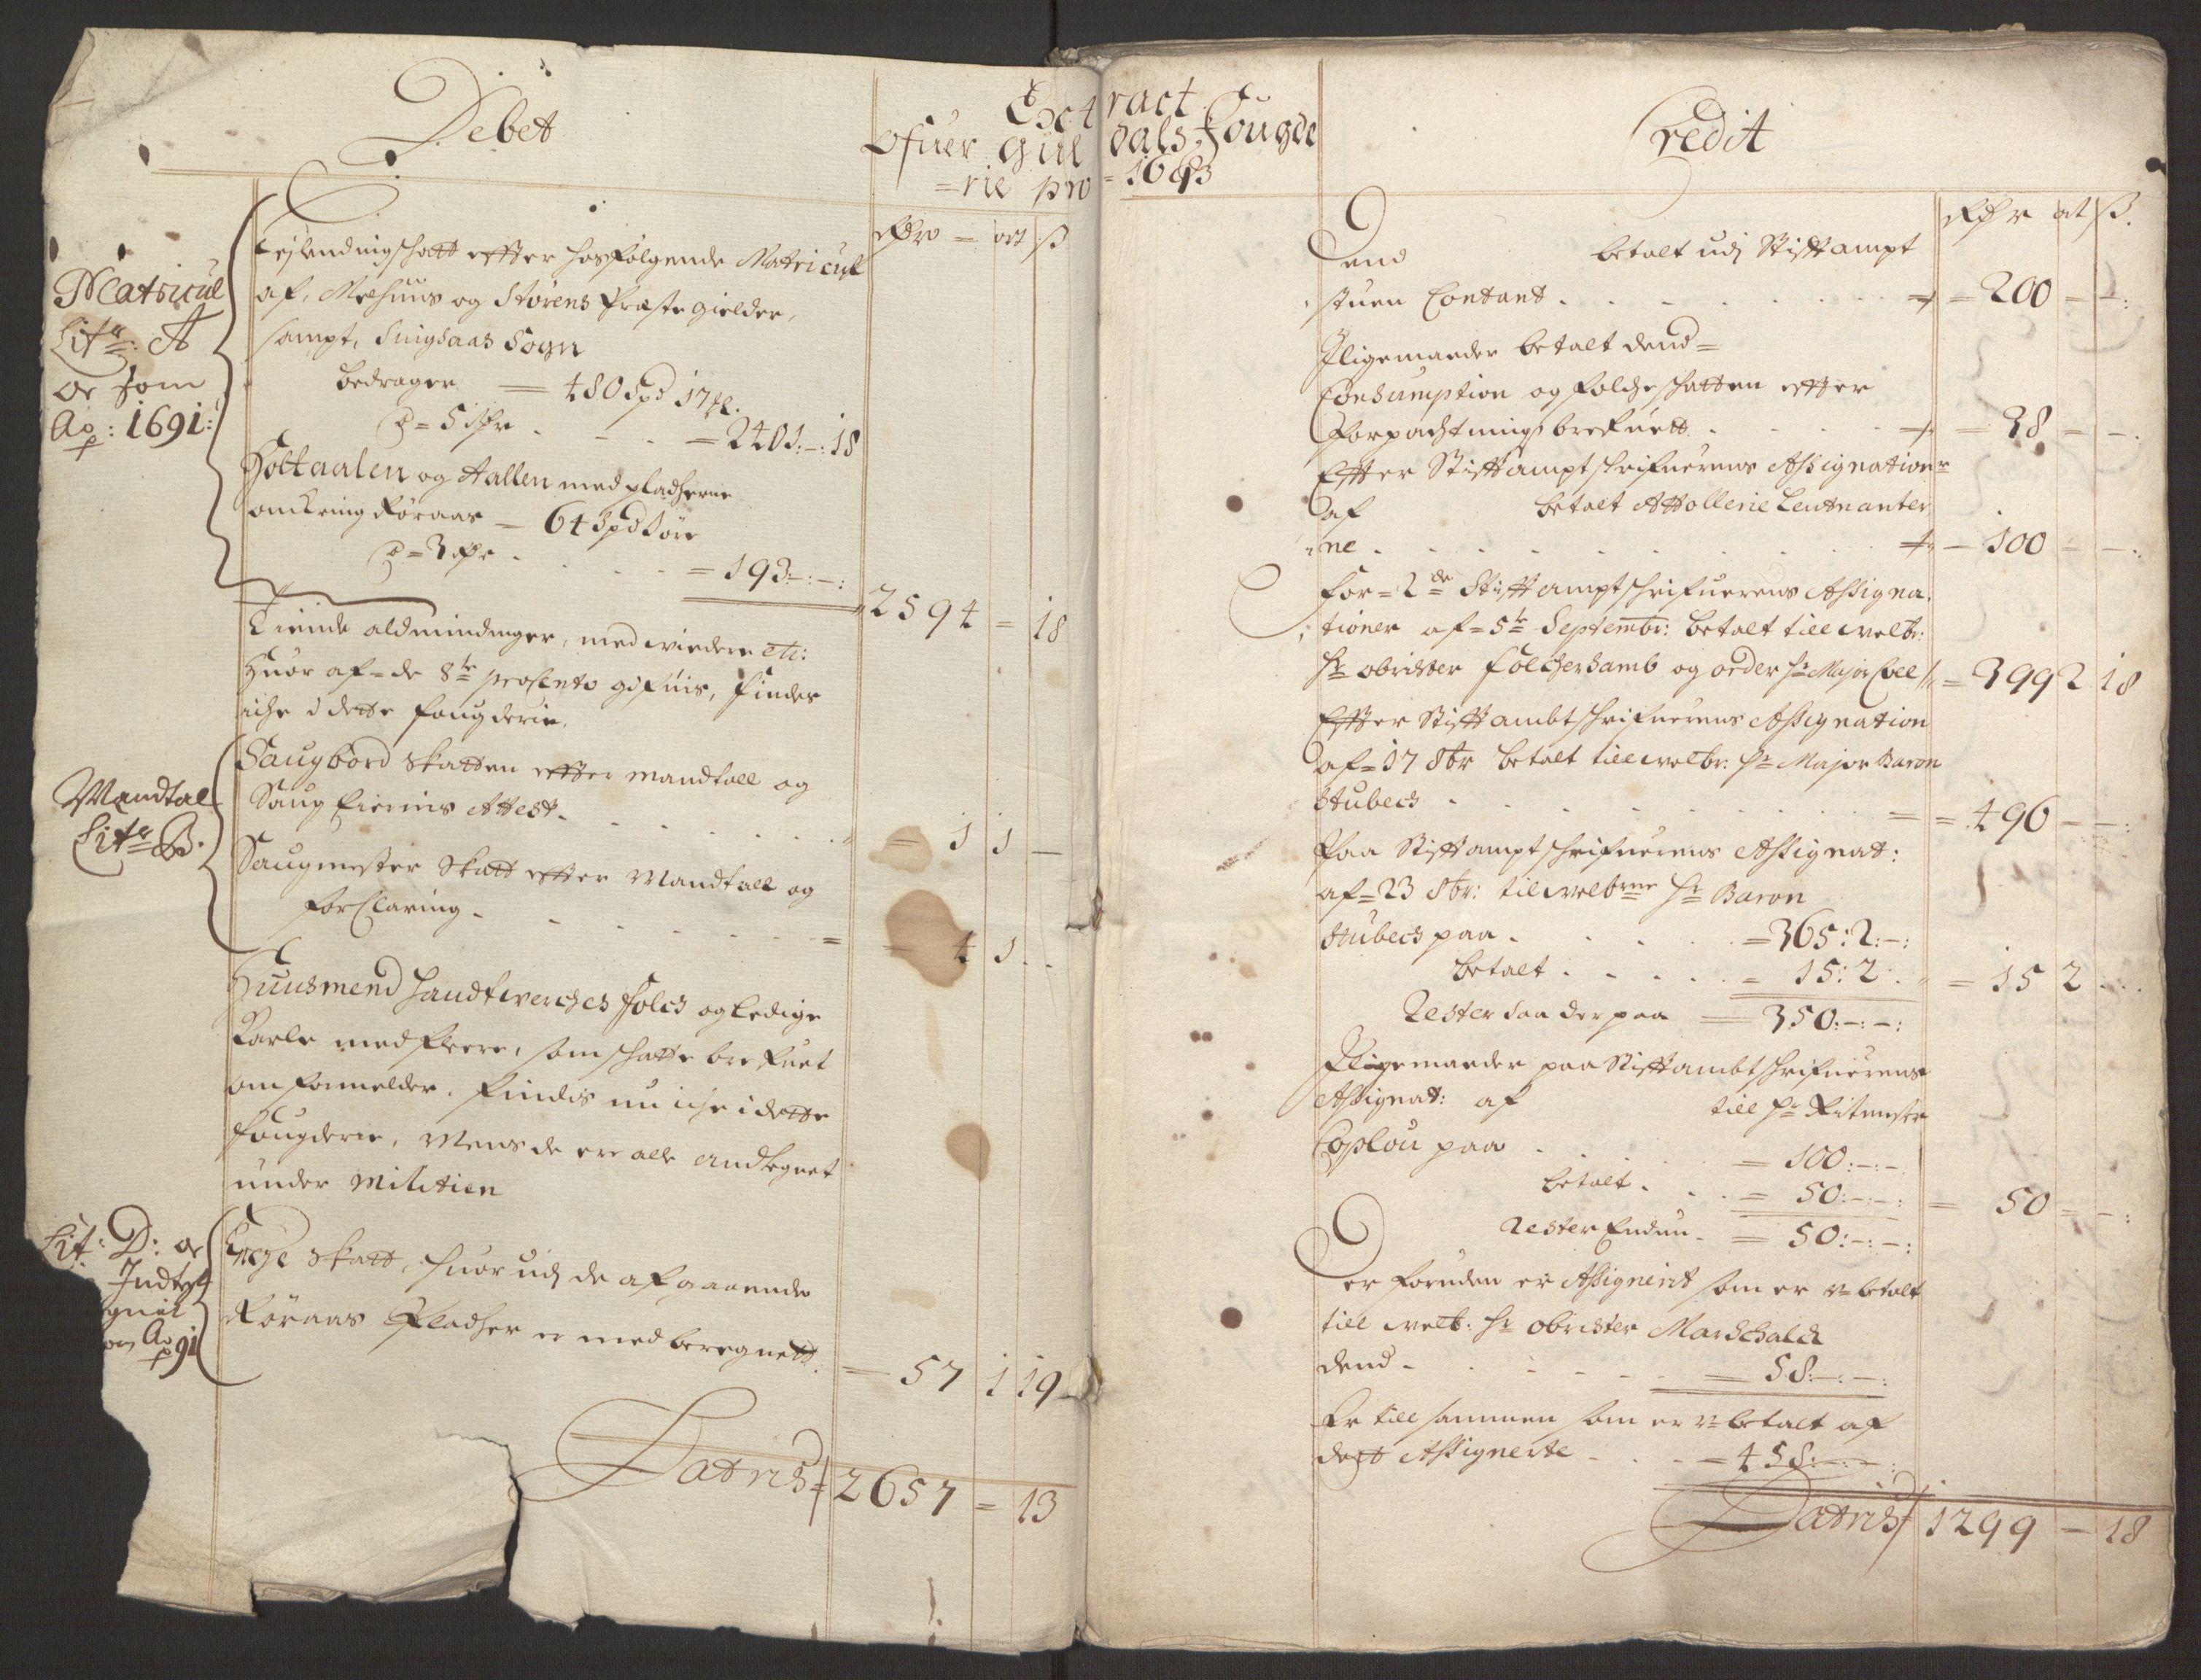 Debet
Extract
Ofuer Gül dals Fougde
=rie pro = 1693
Credit
Matricul
Litr: A
som
Ao: 1691:
Rdr = ort ß
Leylendingschatt effter hosfølgende Matricul
af, Melhuus og Størens Præstegielder,
sampt, Singsaas Sogn
bedrager = 480 Spd 17 .
@ = 5 Rdr . - - . = 2401:-:18
Holtaalen og Aallen med pladserne
omkring Røraas = 64 Spd
@ = 3 Rdr . . . . = 193:-:-:
2594 = 18
Tiende aldmindinger, med widere etc:
huor af = de 8te prosento gifuis, findes
iche i dette fougderie.
Mandtal
Litr B.
Saugbord skatten effter mandtall og
Saug Eiernis Attest. . . . . . = 1 1 —
Saugmester Skatt effter Mandtall og
forClaring . . . . . = 4 1 . .
Huusmend Handtwerches folch og ledige
Karle med fleere, som schatte brefuet
om formelder. findis nu iche i dette
fougderie, Mens de ere alle
under Militien
Lit: D:
Ao 91
Skatt, huorudj de afgaaende
Røraas Pladser er med beregnett.
= 57 1 19
Latris 2657 = 13
Rdr ort ß.
Dend betalt udj Stiftampt
stuen Contant . . . . . = 200 - -:
Iligemaader betalt dend =
Consumption og folcheschatten effter
Forpachtnings brefuett . . . = 38 - -.
Effter Stiftamptschrifuerens Assignation
af betalt Attollerie Leutnanter
ne . . . . . . . = 100 - -:
For = 2de Stiftamptschrifuerens Assigna:
tioner af = 5te Septembr: betalt till welb:
Hr obrister Folchersamb og Hr Major Coll = 399 2 18
Effter Stiftambtschrifuerens Assignation
af = 17 8br betalt till welbr: Hr Major Baron
Stubech . . . . . = 496 - -:
Paa Stiftamptschrifuerens Assignat:
af = 23 8br: til welbrne Hr Baron
Stubech paa . . . . = 365:2:-:
betalt . . . . . = 15:2: = 15 2 - .
Rester saa der paa = 350:-:-:
Iligemaader paa Stiftambtschrifuerens
Assignat: af till Hr Ritmester
Coplou paa . . . = 100:-:-
betalt . . . = 50:-:-: = 50 = -:
Rester Endnu . = 50:-:-:
Der foruden er Assignerit som er u-betalt
till welb: Hr obrister Marschalch
dend . . . . . = 58:-:-:
Er till sammen som er u-betalt af
dett Assignerte . . . = 458:-:-:
Latris 1299 = 18